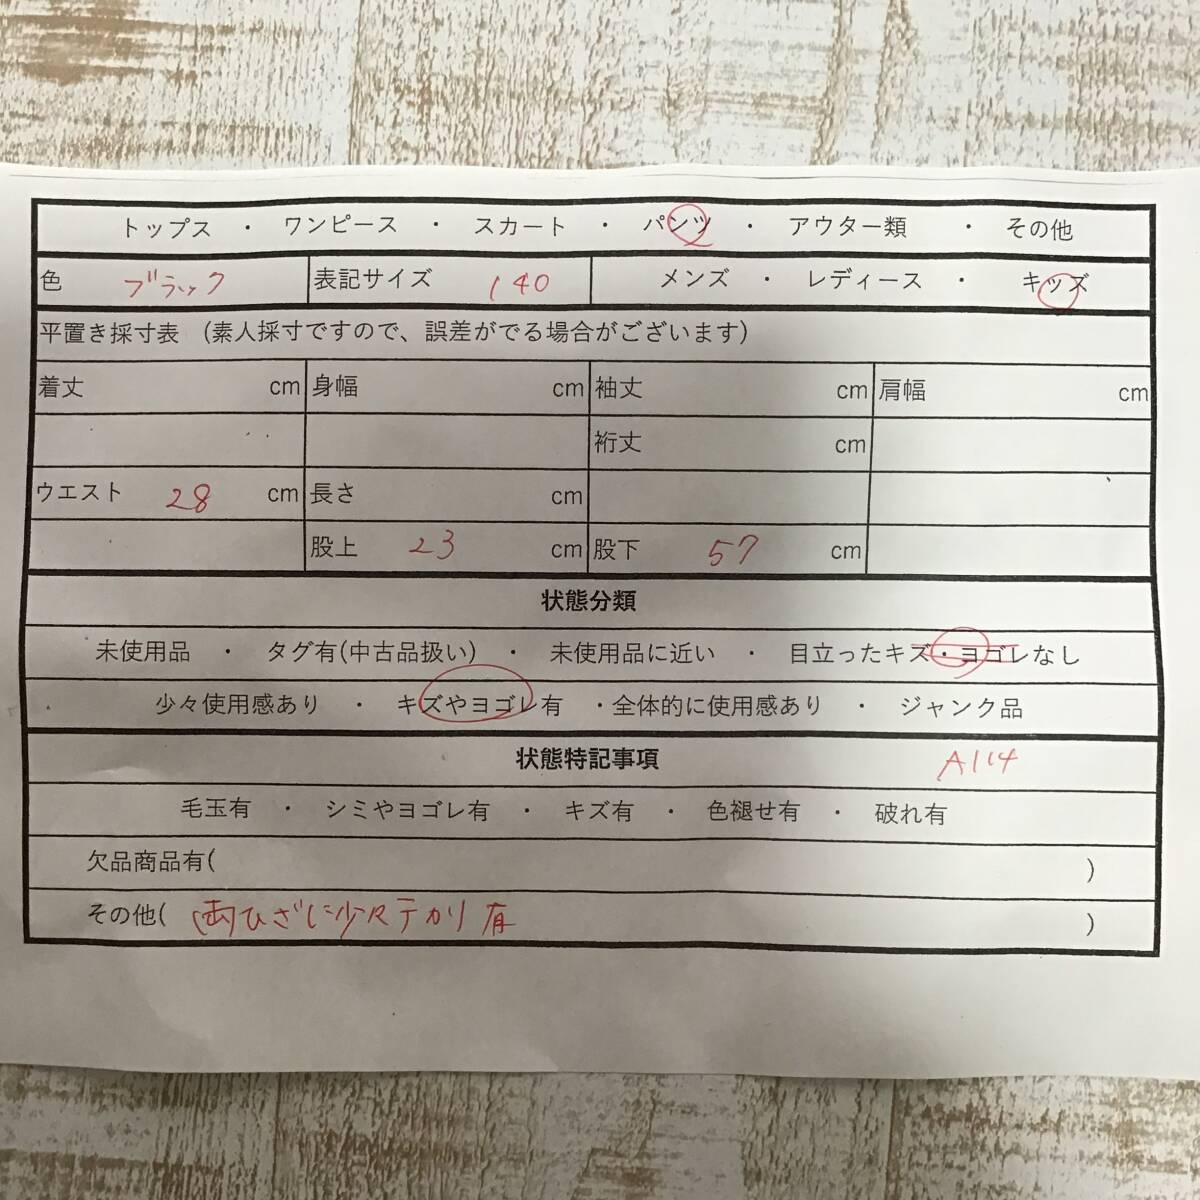 トップス ・ ワンピース ・ スカート ・ パンツ ・ アウター類 ・ その他
色 ブラック 表記サイズ 140 メンズ ・ レディース ・ キッズ
平置き採寸表 (素人採寸ですので、誤差がでる場合がございます)
着丈 cm 身幅 cm 袖丈 cm 肩幅 cm
裄丈 cm
ウエスト 28 cm 長さ cm
股上 23 cm 股下 57 cm
状態分類
未使用品 ・ タグ有(中古品扱い) ・ 未使用品に近い ・ 目立ったキズ・ヨゴレなし
少々使用感あり ・ キズやヨゴレ有 ・全体的に使用感あり ・ ジャンク品
状態特記事項 A114
毛玉有 ・ シミやヨゴレ有 ・ キズ有 ・ 色褪せ有 ・ 破れ有
欠品商品有( )
その他( 両ひざに少々テカリ有 )